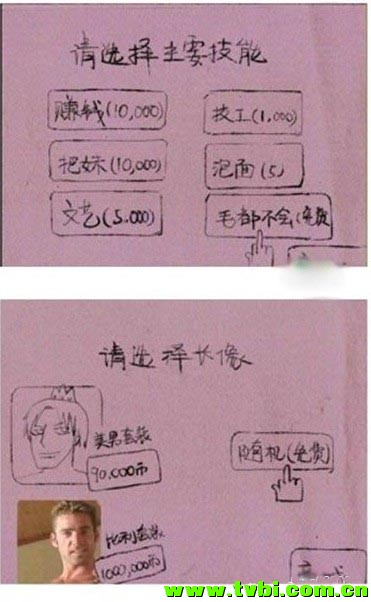 请选择主要技能
赚钱(10,000) 技工(1,000)
把妹(10,000) 泡面(5)
文艺(5.000) 毛都不会(免费
请选择长像
美男套装
90,000币
随机(免费)
比利套装
1000,000币
www.tvbi.com.cn